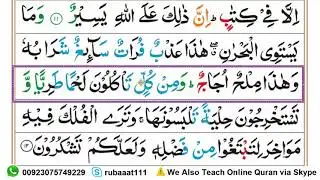 اِلَّا فِیْ كِتٰبٍ ؕ اِنَّ ذٰلِكَ عَلَی اللّٰهِ یَسِیْرٌ ۱۱ وَمَا
یَسْتَوِی الْبَحْرٰنِ ۖ هٰذَا عَذْبٌ فُرَاتٌ سَآىِٕغٌ شَرَابُهٗ
وَهٰذَا مِلْحٌ اُجَاجٌ ؕ وَمِنْ كُلٍّ تَاْكُلُوْنَ لَحْمًا طَرِیًّا وَّ
تَسْتَخْرِجُوْنَ حِلْیَةً تَلْبَسُوْنَهَا ۚ وَتَرَی الْفُلْكَ فِیْهِ
مَوَاخِرَ لِتَبْتَغُوْا مِنْ فَضْلِهٖ وَلَعَلَّكُمْ تَشْكُرُوْنَ ۱۲
00923075749229 rubaaat111 We Also Teach Online Quran via Skype